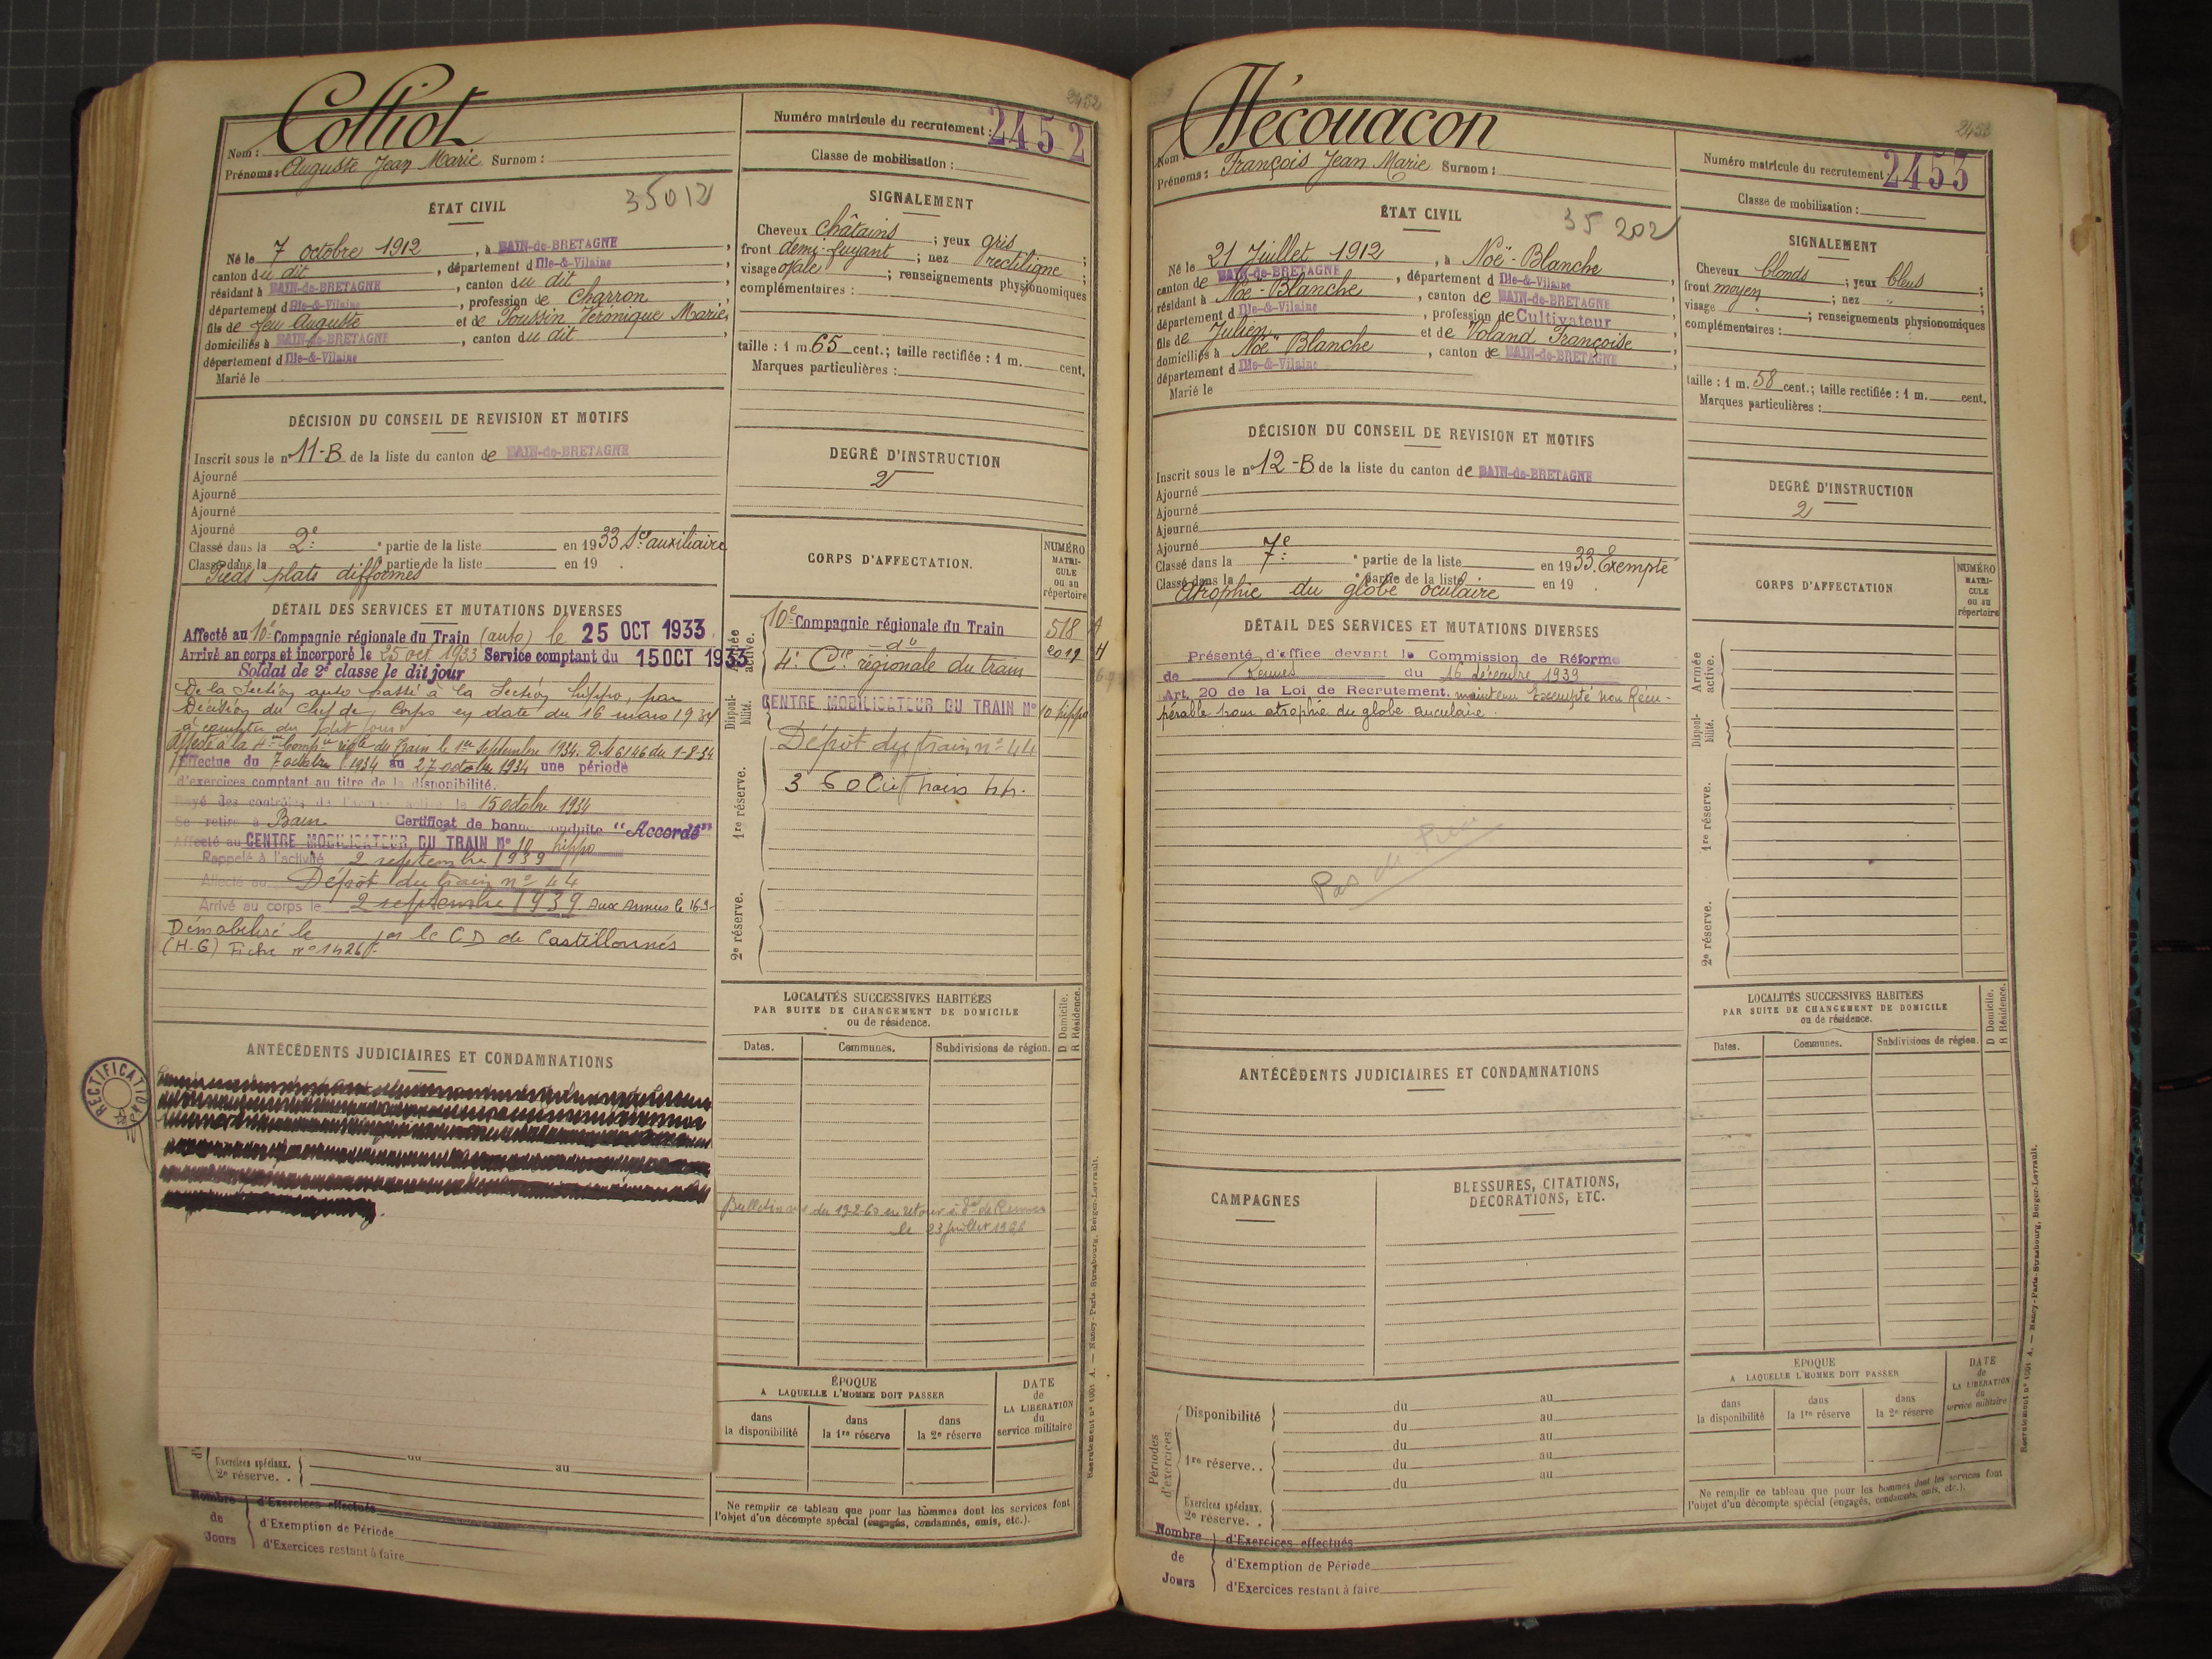 2452
Colliot
Nom :
Prénoms : Auguste Jean Marie Surnom :
Numéro matricule du recrutement : 2452
Classe de mobilisation :
ÉTAT CIVIL
35012
Né le 7 octobre 1912, à BAIN-de-BRETAGNE,
canton du dit, département d Ille-&-Vilaine
résidant à BAIN-de-BRETAGNE, canton du dit,
département d Ille-&-Vilaine, profession de Charron
fils de feu Auguste et de Poussin Véronique Marie,
domiciliés à BAIN-de-BRETAGNE, canton du dit,
département d Ille-&-Vilaine
Marié le
SIGNALEMENT
Cheveux châtains ; yeux gris
front demi-fuyant ; nez rectiligne ;
visage ovale ; renseignements physionomiques
complémentaires :
taille : 1 m. 65 cent.; taille rectifiée : 1 m. cent.
Marques particulières :
DÉCISION DU CONSEIL DE REVISION ET MOTIFS
Inscrit sous le n° 11-B de la liste du canton de BAIN-de-BRETAGNE
Ajourné
Ajourné
Ajourné
Ajourné
Classé dans la 2e partie de la liste en 1933 Sce auxiliaire
Classé dans la partie de la liste en 19 .
Pieds plats difformes
DEGRÉ D'INSTRUCTION
2
DÉTAIL DES SERVICES ET MUTATIONS DIVERSES
Affecté au 10e Compagnie régionale du Train (auto) le 25 OCT 1933
Arrivé au corps et incorporé le 25 oct 1933 Service comptant du 15 OCT 1933
Soldat de 2e classe le dit jour
De la Section auto passé à la Section hippo, par
Décision du chef de Corps en date du 16 mars 1934
à compter du dit jour
Affecté à la 4me Compie rgle du Train le 1er Septembre 1934. DM 6146 du 1-8-34
Effectue du 7 octobre 1934 au 27 octobre 1934 une période
d'exercices comptant au titre de la disponibilité.
Rayé des contrôles de l'armée active le 15 octobre 1934
Se retire à Bain Certificat de bonne conduite "Accordé"
Affecté au CENTRE MOBILISATEUR DU TRAIN N° 10 hippo
Rappelé à l'activité 2 septembre 1939
Affecté au Dépôt du train n° 44
Arrivé au corps le 2 septembre 1939. aux armées le 16-9-
Démobilisé le par le CD de Castillonnès
(H-G) Fiche n° 1426
CORPS D'AFFECTATION.
NUMÉRO MATRICULE ou au répertoire
Armée active.
10e Compagnie régionale du Train 518 A
do 2019 H
4e Cie régionale du train
Disponibilité.
CENTRE MOBILISATEUR DU TRAIN N° 10 hippo
1re réserve.
Dépôt du train n° 44
2e réserve.
LOCALITÉS SUCCESSIVES HABITÉES
PAR SUITE DE CHANGEMENT DE DOMICILE
ou de résidence.
D Domicile.
R Résidence.
Dates. Communes. Subdivisions de région.
le 23 juillet 1968
ANTÉCÉDENTS JUDICIAIRES ET CONDAMNATIONS
RECTIFICATIONS
ÉPOQUE
A LAQUELLE L'HOMME DOIT PASSER
dans la disponibilité
dans la 1re réserve
dans la 2e réserve
DATE de LA LIBÉRATION du service militaire
Exercices spéciaux. du au
2e réserve. .
Nombre de Jours
d'Exercices effectués
d'Exemption de Période
d'Exercices restant à faire
Ne remplir ce tableau que pour les hommes dont les services font
l'objet d'un décompte spécial (engagés, condamnés, omis, etc.).
Recrutement n° 1001 A. — Nancy-Paris-Strasbourg, Berger-Levrault.
2453
Hécouacon
Nom :
Prénoms : François Jean Marie Surnom :
Numéro matricule du recrutement : 2453
Classe de mobilisation :
ÉTAT CIVIL
35 202
Né le 21 Juillet 1912, à Noë-Blanche
canton de BAIN-de-BRETAGNE, département d Ille-&-Vilaine,
résidant à Noë-Blanche, canton de BAIN-de-BRETAGNE,
département d Ille-&-Vilaine, profession de Cultivateur
fils de Julien et de Voland Françoise
domiciliés à Noë Blanche, canton de BAIN-de-BRETAGNE,
département d Ille-&-Vilaine
Marié le
SIGNALEMENT
Cheveux blonds ; yeux bleus ;
front moyen ; nez " ;
visage ; renseignements physionomiques
complémentaires :
taille : 1 m. 58 cent.; taille rectifiée : 1 m. cent.
Marques particulières :
DÉCISION DU CONSEIL DE REVISION ET MOTIFS
Inscrit sous le n° 12-B de la liste du canton de BAIN-de-BRETAGNE
Ajourné
Ajourné
Ajourné
Ajourné
Classé dans la 7e partie de la liste en 1933. Exempté
Classé dans la partie de la liste en 19 .
Atrophie du globe oculaire
DEGRÉ D'INSTRUCTION
2
DÉTAIL DES SERVICES ET MUTATIONS DIVERSES
Présenté d'office devant la Commission de Réforme
de Rennes du 16 décembre 1939
Art. 20 de la Loi de Recrutement. maintenu Exempté non Récu-
pérable pour atrophie du globe auculaire.
Pas de
CORPS D'AFFECTATION
NUMÉRO MATRICULE ou au répertoire
Armée active.
Disponibilité.
1re réserve.
2e réserve.
LOCALITÉS SUCCESSIVES HABITÉES
PAR SUITE DE CHANGEMENT DE DOMICILE
ou de résidence.
D Domicile.
R Résidence.
Dates. Communes. Subdivisions de région.
ANTÉCÉDENTS JUDICIAIRES ET CONDAMNATIONS
CAMPAGNES
BLESSURES, CITATIONS, DÉCORATIONS, ETC.
Périodes d'exercices.
Disponibilité du au
du au
1re réserve. . du au
du au
du au
du
Exercices spéciaux.
2e réserve. .
ÉPOQUE
A LAQUELLE L'HOMME DOIT PASSER
dans la disponibilité
dans la 1re réserve
dans la 2e réserve
DATE de LA LIBÉRATION du service militaire
Ne remplir ce tableau que pour les hommes dont les services font
l'objet d'un décompte spécial (engagés, condamnés, omis, etc.).
Nombre de Jours
d'Exercices effectués
d'Exemption de Période
d'Exercices restant à faire
Recrutement n° 1001 A. — Nancy-Paris-Strasbourg, Berger-Levrault.